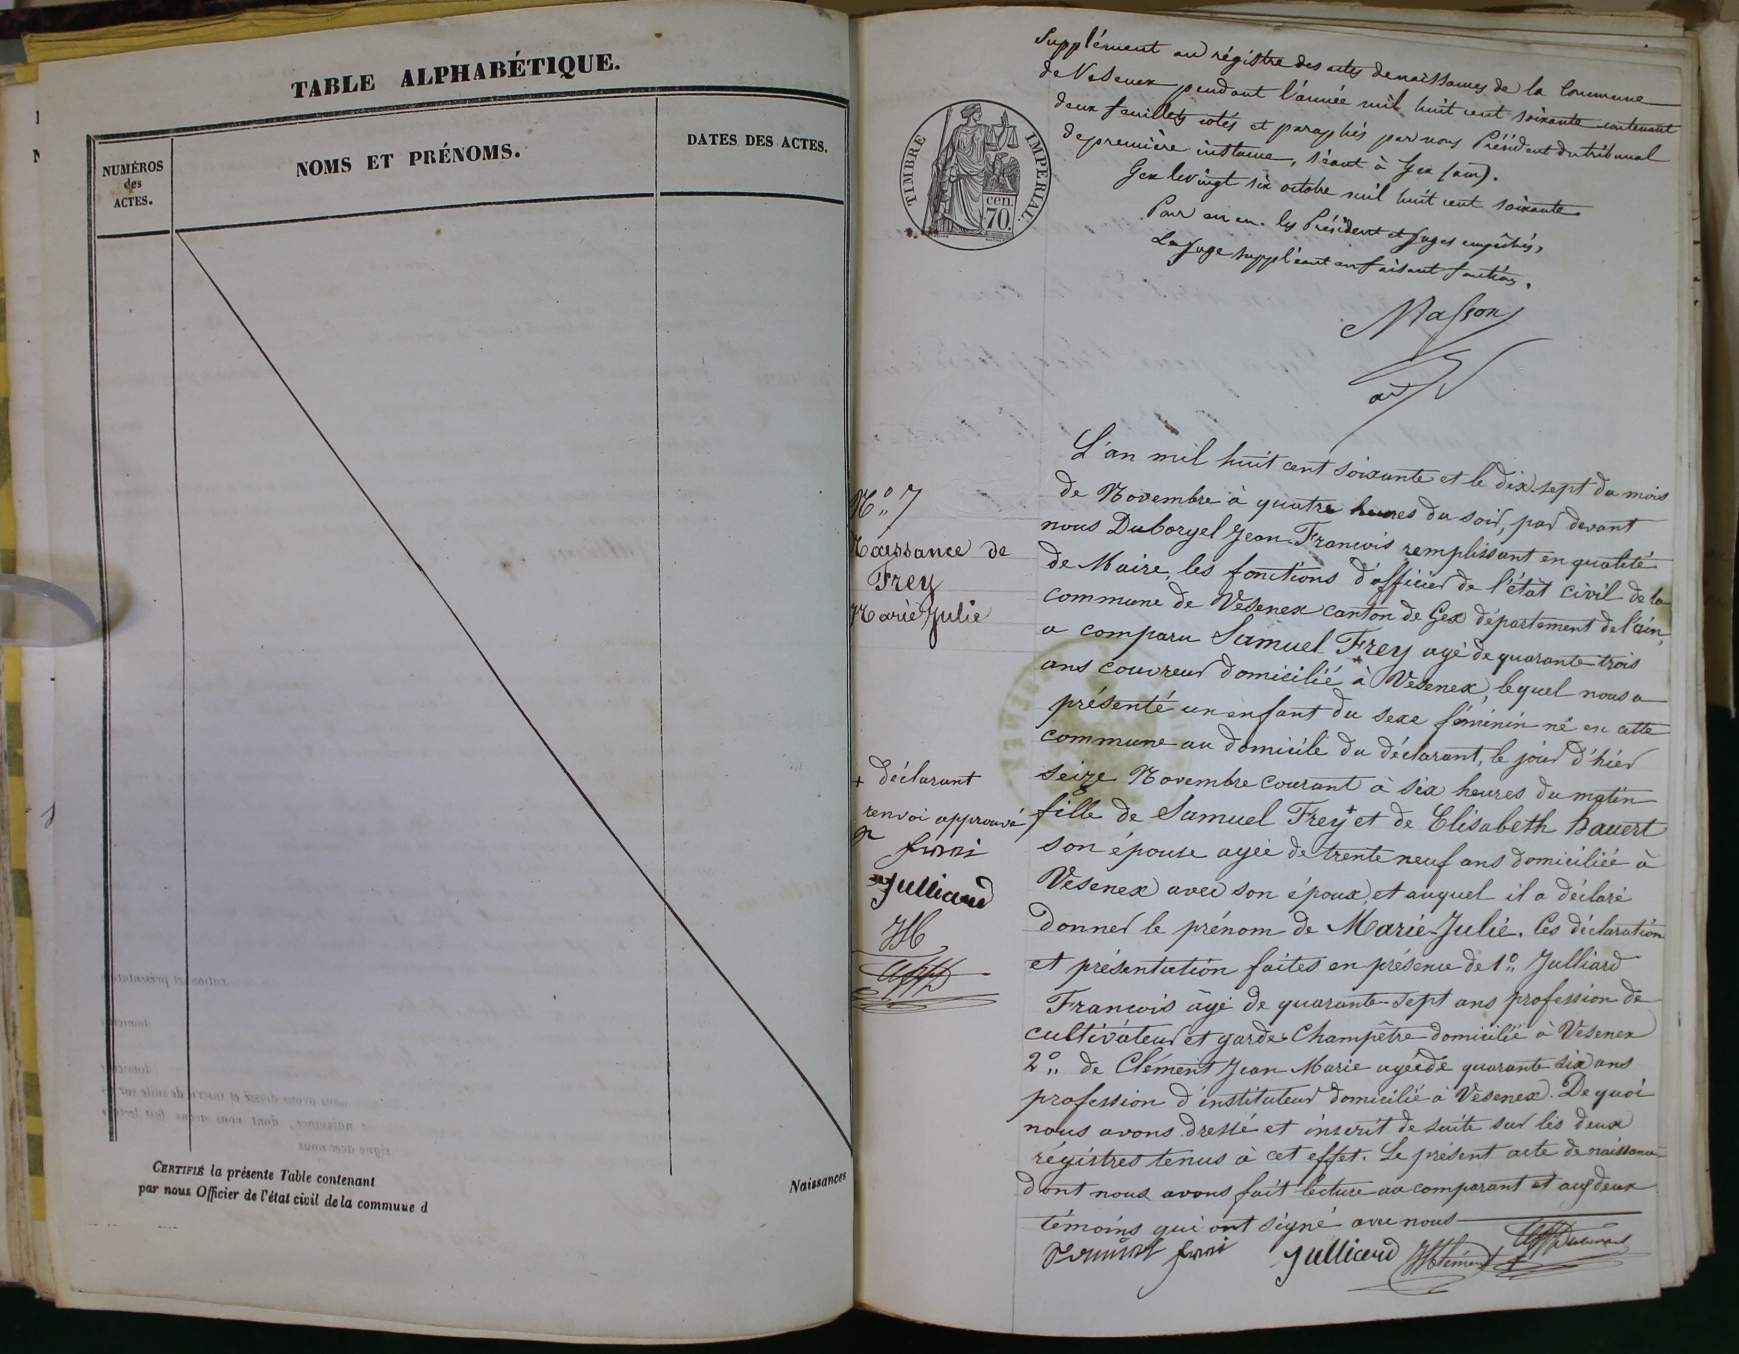 TABLE ALPHABÉTIQUE.
NUMÉROS
des
ACTES.
NOMS ET PRÉNOMS.
DATES DES ACTES.
CERTIFIÉ la présente Table contenant
Naissances
par nous Officier de l'état civil de la commune d
Supplément au régistre des actes de naissances de la Commune
de Vesenex pendant l'année mil huit cent soixante contenant
deux feuillets cotés et paraphés par nous Président du tribunal
de première instance, séant à Gex (ain).
Gex le vingt six octobre mil huit cent soixante
Pour les Président et Juges empêchés,
Le Juge suppléant en faisant fonctions.
Masson
TIMBRE IMPÉRIAL.
cen.
70.
N° 7
Naissance de
Frey
Marie Julie
L'an mil huit cent soixante et le dix sept du mois
de Novembre à quatre heures du soir, par devant
nous Duborgel Jean-François remplissant en qualité
de Maire, les fonctions d'officier de l'état civil de la
commune de Vesenex canton de Gex département de l'ain,
a comparu Samuel Frey agé de quarante trois
ans couvreur domicilié à Vesenex, lequel nous a
présenté un enfant du sexe féminin né en cette
commune au domicile du déclarant, le jour d'hier
seize Novembre courant à six heures du matin
fille de Samuel Frey + et de Elisabeth Bauert
son épouse agée de trente neuf ans domiciliée à
Vesenex avec son époux, et auquel il a déclaré
donner le prénom de Marie-Julie. Ces déclaration
et présentation faites en présence de 1° Julliard
François âgé de quarante-sept ans profession de
cultivateur et garde-Champêtre domicilié à Vesenex
2° de Clément Jean Marie agé de quarante six ans
profession d'instituteur domicilié à Vesenex. De quoi
nous avons dressé et inscrit de suite sur les deux
registres tenus à cet effet. Le présent acte de naissance
dont nous avons fait lecture au comparant et aux deux
témoins qui ont signé avec nous
+ déclarant
renvoi approuvé
Julliard
Julliard Clément